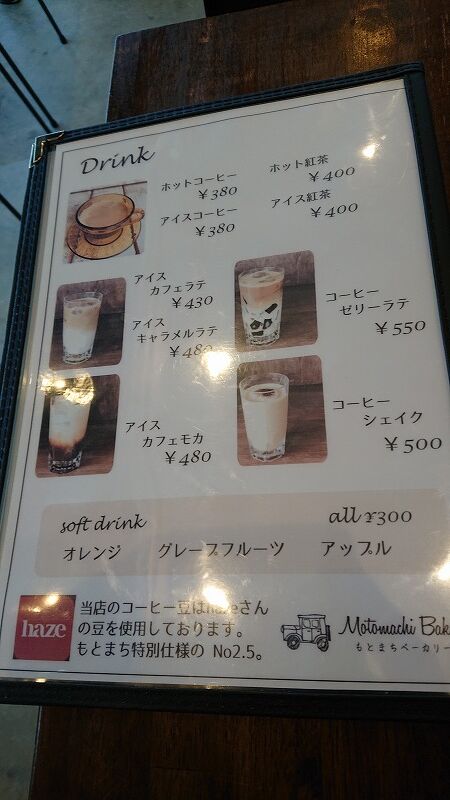 Drink
ホットコーヒー
￥380
アイスコーヒー
￥380
ホット紅茶
￥400
アイス紅茶
￥400
アイス
カフェラテ
￥430
アイス
キャラメルラテ
￥480
コーヒー
ゼリーラテ
￥550
アイス
カフェモカ
￥480
コーヒー
シェイク
￥500
soft drink
all ¥300
オレンジ グレープフルーツ アップル
haze
当店のコーヒー豆はhazeさん
の豆を使用しております。
もとまち特別仕様の No2.5。
Motomachi Bak
もとまちベーカリー